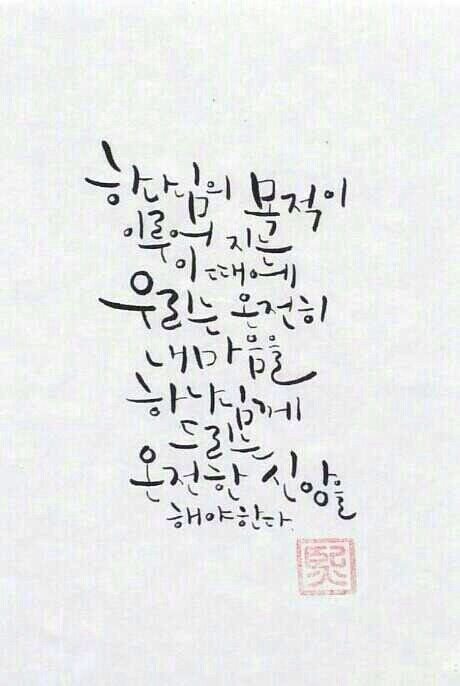 하나님의 목적이
이루어 지는
이 때에
우리는 온전히
내마음을
하나님께
드리는
온전한 신앙을
해야한다.
熙